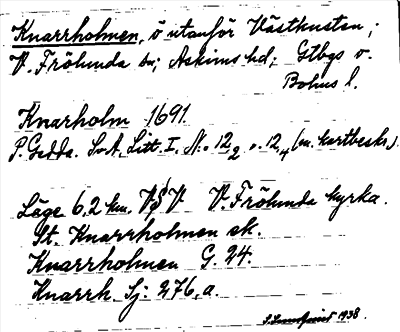 Knarrholmen, ö utanför Västkusten;
V. Frölunda sn; Askims hd; Gtbgs o.
Bohus l.
Knarholm 1691.
P. Gedda. Sv. A. Litt. I. N:o 12₂ o. 12₄ (m. kartbeskr.)
Läge 6,2 km. VSV V. Frölunda kyrka.
St. Knarrholmen ek.
Knarrholmen G. 24.
Knarrh. Sj: 276, a.
1938.